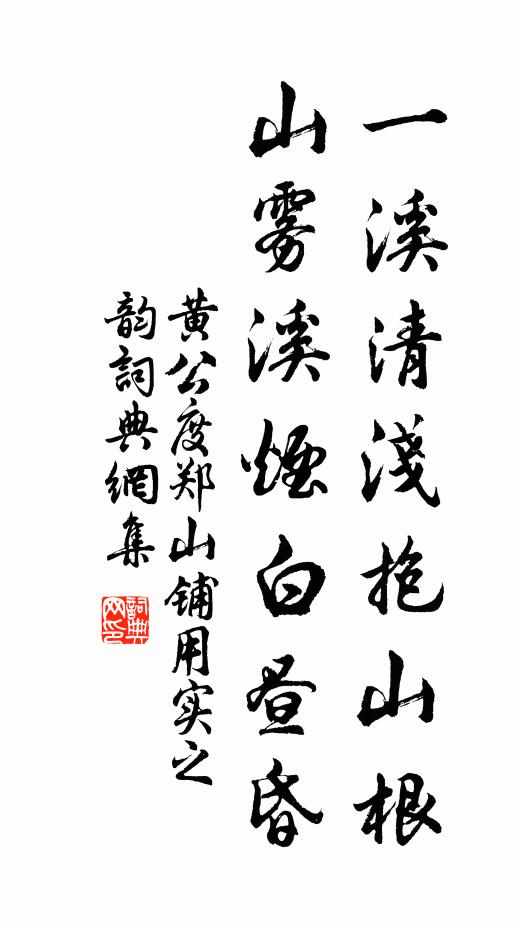 一溪清淺抱山根
山雾溪煙白昼昏
黄公度郑山铺用实之
韵詞典網集
詞典
网印